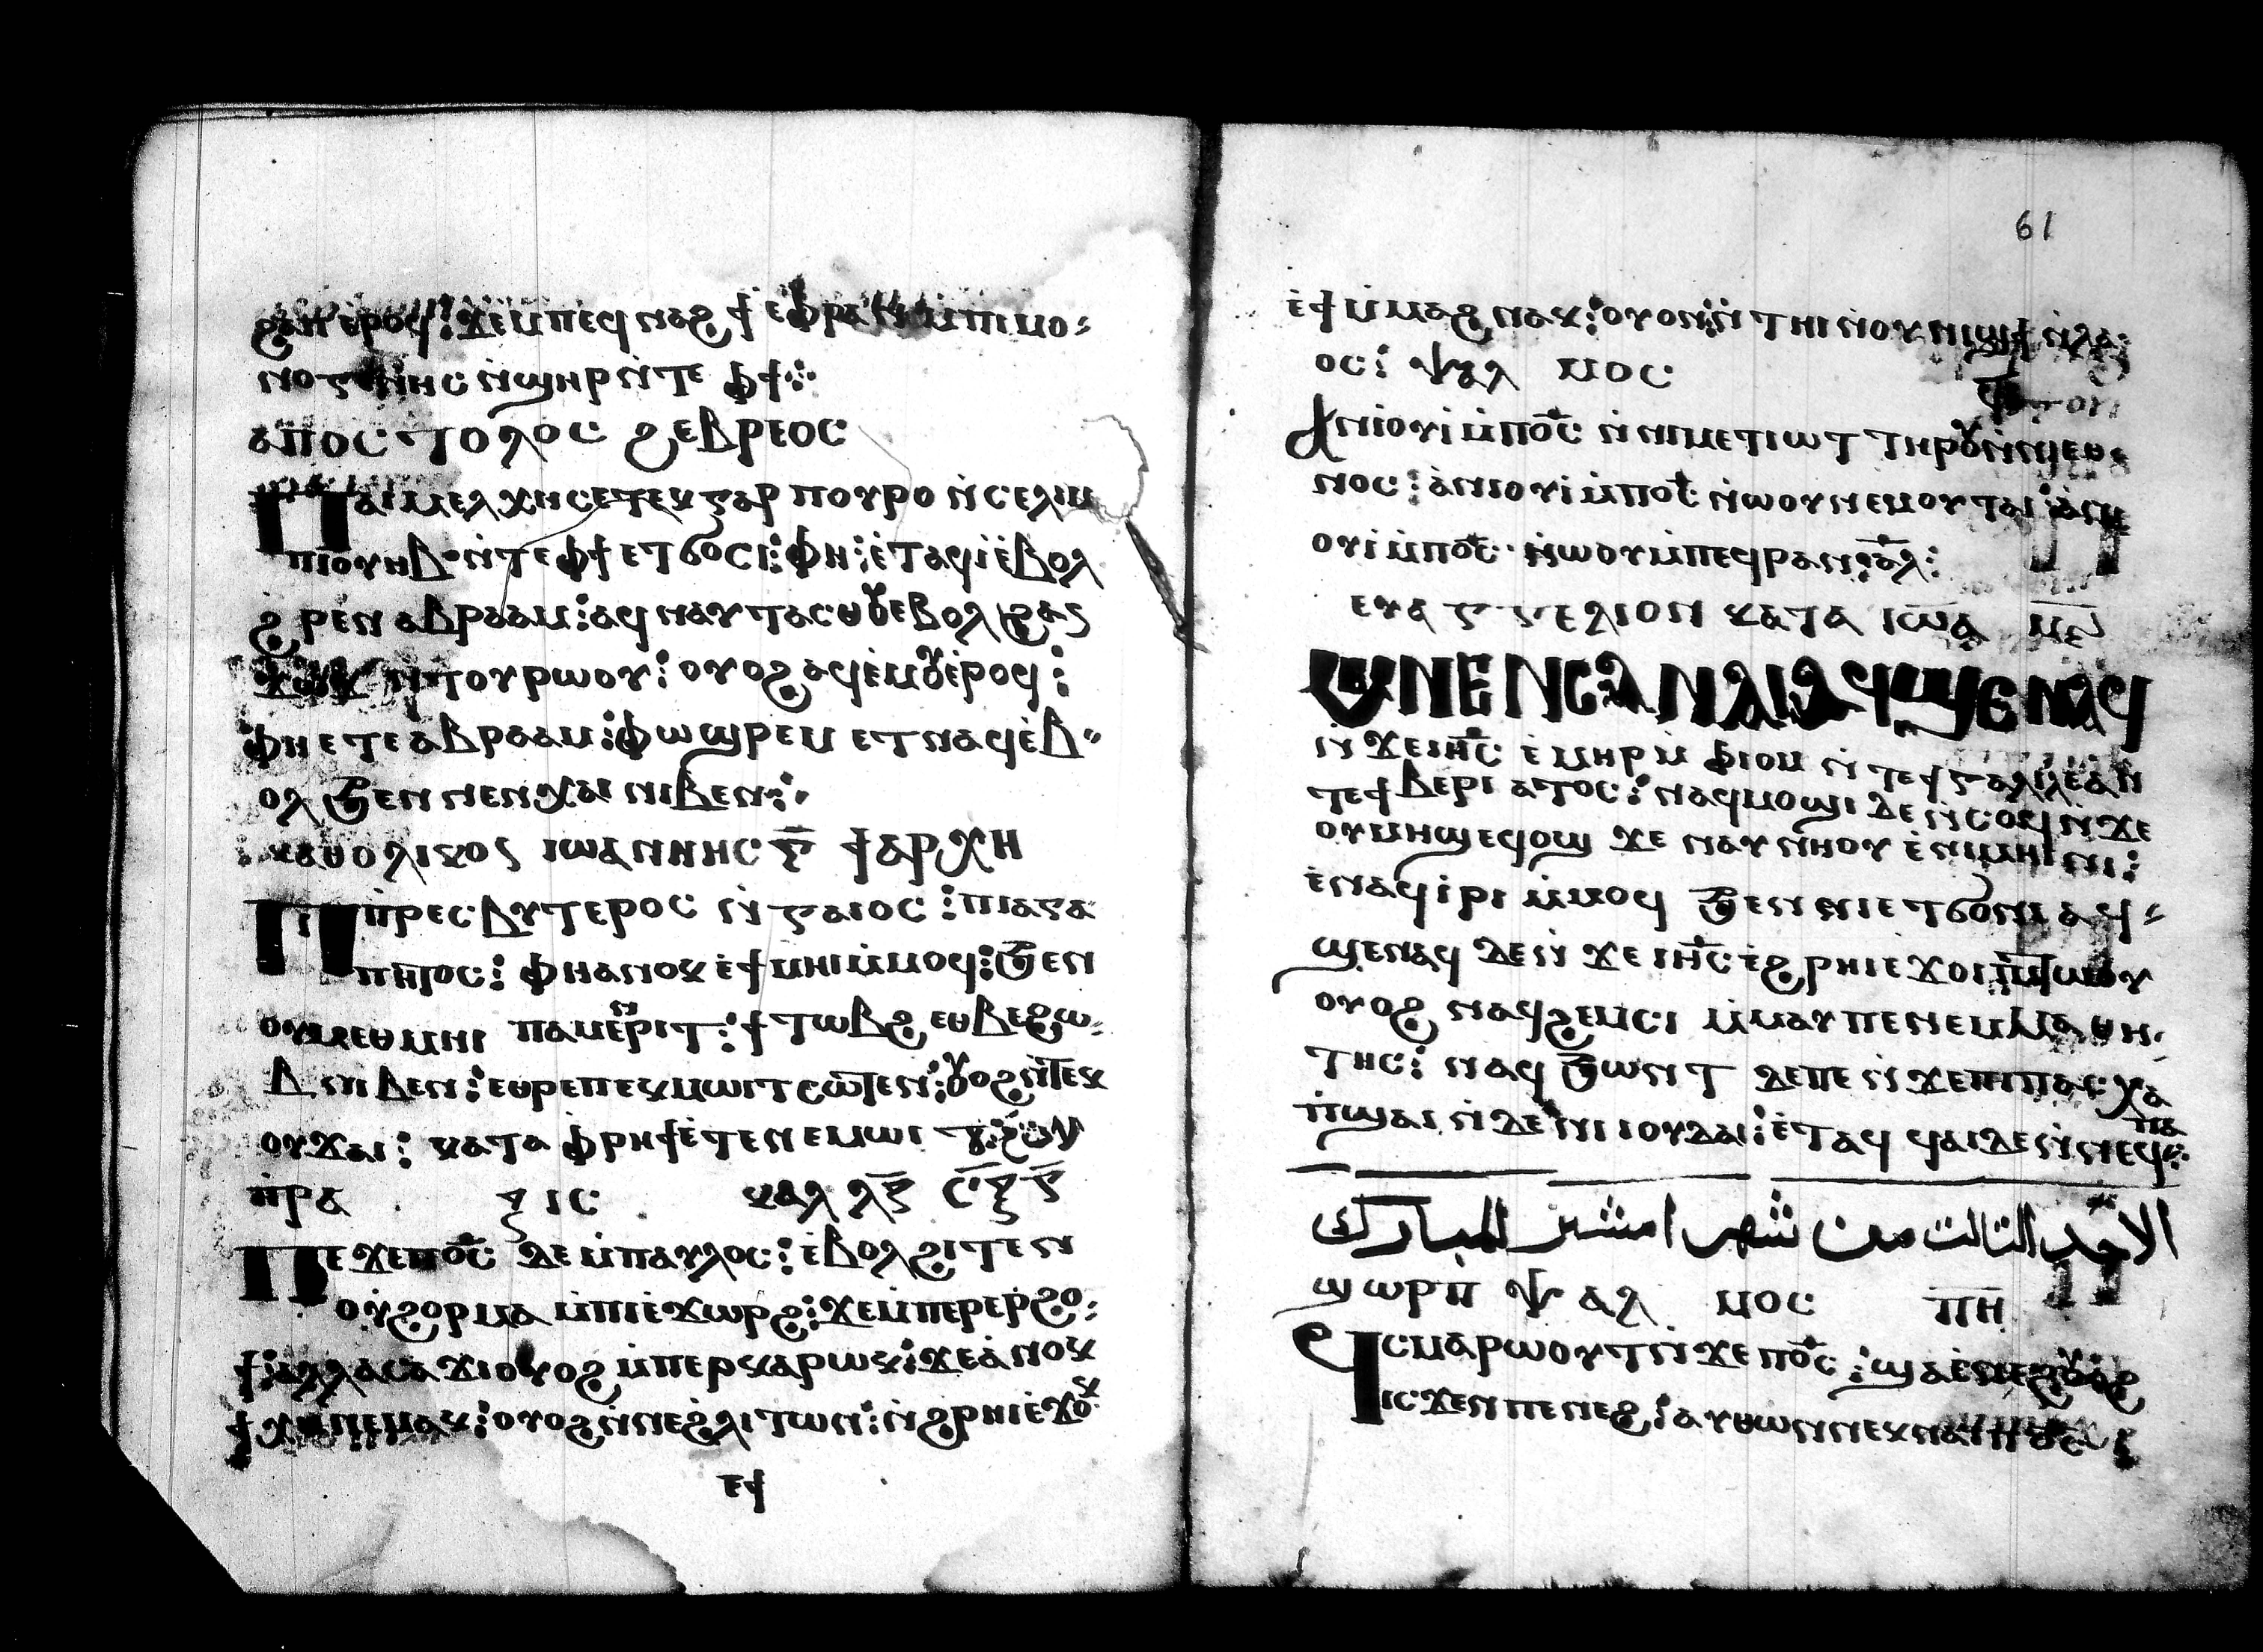 ϩⲁⲡ ⲉ̀ⲣⲟϥ : ϫⲉ ⲙ̀ⲡⲉϥⲛⲁϩϯ ⲉ̀ⲫⲣⲁⲛ ⲙ̀ⲡⲓⲙⲟ⸗
ⲛⲟⲅⲉⲛⲏⲥ ⲛ̀ϣⲏⲣⲓ ⲛ̀ⲧⲉ ⲫϯ⁘
ⲁⲡⲟⲥⲧⲟⲗⲟⲥ ϩⲉⲃⲣⲉⲟⲥ
Ⲡⲁⲓⲙⲉⲗⲭⲏⲥⲉⲧⲉⲕ ⲅⲁⲣ ⲡⲟⲩⲣⲟ ⲛ̀ⲥⲉⲗⲓⲙ
ⲡⲓⲟⲩⲏⲃ ⲛ̀ⲧⲉ ⲫϯ ⲉⲧϭⲟⲥⲓ : ⲫⲏ : ⲉ̀ⲧⲁϥⲓ̀ ⲉ̀ⲃⲟⲗ
ϩⲣⲉⲛ ⲁⲃⲣⲁⲁⲙ : ⲁϥⲛⲁⲩ ⲧⲁⲥⲑⲟⲩ ⲉⲃⲟⲗ ϩⲁⲅ
ϫⲱϫ ⲛ̀ⲧⲟⲩⲣⲱⲟⲩ : ⲟⲩⲟϩ ⲁϥⲉ̀ⲙⲟⲩ ⲉ̀ⲣⲟϥ :
ⲫⲏ ⲉⲧⲉ ⲁⲃⲣⲁⲁⲙ : ⲫⲱϣ ⲣⲉⲙ ⲉⲧⲛⲁϥ ⲉ̀ⲃ⸗
ⲟⲗ ϧⲉⲛ ⲛⲉⲛⲭⲁⲓ ⲛⲓⲃⲉⲛ⁘
ⲕⲁⲑⲟⲗⲓⲕⲟⲥ ⲓⲱⲁⲛⲛⲏⲥ ⲅ̅ ϯⲁⲣⲭⲏ
Ⲡⲓⲡⲣⲉⲥⲃⲩⲧⲉⲣⲟⲥ ⲛ̀ⲅⲁⲓⲟⲥ : ⲡⲓⲁⲅⲁ
ⲡⲏⲧⲟⲥ : ⲫⲏ ⲁⲛⲟⲕ ⲉ̀ϯⲙⲏⲓ ⲙ̀ⲙⲟϥ : ϧⲉⲛ
ⲟⲩⲙⲉⲑⲙⲏⲓ ⲡⲁⲙⲉⲛⲣⲓⲧ : ϯⲧⲱⲃϩ ⲉⲑⲃⲉ ϩⲱ⸗
ⲃ ⲛⲓⲃⲉⲛ : ⲉⲑⲣⲉ ⲡⲉⲕⲙⲱⲓⲧ ⲥⲱ̅ⲧⲉⲛ : ⲟⲩⲟϩ ⲛ̀ⲧⲉⲕ
ⲟⲩϫⲁⲓ : ⲕⲁⲧⲁ ⲫⲣⲏϯ ⲉ̀ⲧⲉ ⲛⲉⲙⲱⲓⲧ
ⲡ̀ⲣⲁⲝⲓⲥ ⲕⲁⲗ ⲗⲍ̅ ⲥ̅ⲝ̅ⲅ̅
Ⲡⲉϫⲉ ⲡⲟ̅ⲥ̅ ⲇⲉ ⲙ̀ⲡⲁⲩⲗⲟⲥ : ⲉ̀ⲃⲟⲗ ϩⲓⲧⲉⲛ
ⲟⲩϩⲟⲣⲙⲁ ⲙ̀ⲡⲓⲉ̀ϫⲱⲣϩ : ϫⲉ ⲙ̀ⲡⲉⲣⲉⲣϩⲟ⸗
ϯ : ⲁⲗⲗⲁ ⲥⲁϫⲓ ⲟⲩⲟϩ ⲙ̀ⲡⲉⲣⲕⲁⲣⲱⲕ : ϫⲉ ⲁ̀ⲛⲟⲕ
ϯⲭⲏ ⲛⲉⲙⲁⲕ : ⲟⲩⲟϩ ⲛ̀ⲛⲉϩ̀ⲗⲓ ⲧⲱⲛ : ⲛ̀ϩⲣⲏⲓ ⲉ̀ϫⲟⲕ
ⲉϯ
61
ⲉ̀ϯⲙ̀ⲙⲁϩ ⲛⲁⲕ : ⲟⲩⲟⲛ : ⲛ̀ⲧⲏⲓ ⲛ̀ⲟⲩⲛⲓϣϯ ⲛ̀ⲗⲁ⸗
ⲟⲥ : ⲯⲁⲗⲙⲟⲥ
Ⲁⲛⲓⲟⲩⲓ̀ ⲙ̀ⲡⲟ̅ⲥ̅ ⲛ̀ⲛⲓⲙⲉⲧⲓⲱⲧ ⲧⲏⲣⲟⲩ ⲛ̀ⲛⲓⲉⲑ⸗
ⲛⲟⲥ : ⲁ̀ⲛⲓⲟⲩⲓ̀ ⲙ̀ⲡⲟ̅ⲥ̅ ⲛ̀ⲱⲟⲩ ⲛⲉⲙ ⲟⲩⲧⲁⲓ : ⲁ̀ⲛⲓ
ⲟⲩⲓ̀ ⲙ̀ⲡⲟ̅ⲥ̅ ⲛ̀ⲱⲟⲩ ⲙ̀ⲡⲉϥⲣⲁⲛ : ⲁ̅ⲗ̅ :
ⲉⲩⲁⲅⲅⲉⲗⲓⲟⲛ ⲕⲁⲧⲁ ⲓⲱ̅ⲁ ⲙ̅ⲉ̅
ⲘⲈⲚⲈⲚⲤⲀ ⲚⲀⲒ ⲀϤϢⲈ ⲚⲀϤ
ⲛ̀ϫⲉ ⲓⲏ̅ⲥ̅ ⲉ̀ⲙⲏⲣ ⲙ̀ⲫⲓⲟⲙ ⲛ̀ⲧⲉ ϯⲅⲁⲗⲓⲗⲉⲁ ⲛ̀
ⲧⲉ ϯⲃⲉⲣⲓⲁⲧⲟⲥ : ⲛⲁϥⲙⲟϣⲓ ⲇⲉ ⲛ̀ⲥⲟϥ ⲛ̀ϫⲉ
ⲟⲩⲙⲏϣ ⲉϥⲟϣ ϫⲉ ⲛⲁⲩⲛⲏⲟⲩ ⲉ̀ⲛⲓⲙⲏⲓⲛⲓ :
ⲉ̀ⲛⲁϥⲓ̀ⲣⲓ ⲙ̀ⲙⲟϥ ϧⲉⲛ ⲛⲓⲉⲧϭⲟⲛⲓ ⲁϥ⸗
ϣⲉⲛⲁϥ ⲇⲉ ⲛ̀ϫⲉ ⲓⲏ̅ⲥ̅ ⲉ̀ϩⲣⲏⲓ ⲉϫⲟⲓ ⲡⲓⲧⲱⲟⲩ
ⲟⲩⲟϩ ⲛⲁϥϩⲉⲙⲥⲓ ⲙ̀ⲙⲁⲩ ⲡⲉ ⲛⲉⲙ ⲙⲁⲑⲏ⸗
ⲧⲏⲥ : ⲛⲁϥϧⲱⲛⲧ ⲇⲉ ⲡⲉ ⲛ̀ϫⲉ ⲡⲓⲡⲁⲥⲭⲁ
ⲡ̀ϣⲁⲓ ⲛ̀ⲇⲉ ⲛⲓⲓⲟⲩⲇⲁⲓ : ⲉ̀ⲧⲁϥϥⲁⲓ ⲇⲉ ⲛ̀ⲛⲉϥ⁘
الاحد الثالث من شهر امشير المبارك
ϣⲱⲣⲡ̀ ⲯⲁⲗⲙⲟⲥ ⲡ̅ⲏ̅
Ϥⲥⲙⲁⲣⲱⲟⲩⲧ ⲛ̀ϫⲉ ⲡⲟ̅ⲥ̅ : ϣⲁ ⲉ̀ⲛⲉϩ
ⲓⲥϫⲉⲛ ⲡⲉⲛⲉϩ : ⲁⲩⲑⲱⲛ ⲛⲉⲕⲛⲁⲓ